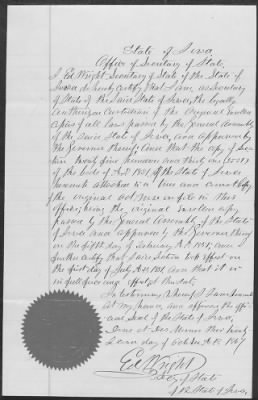 State of Iowa
Office of Secretary of State
I Ed Wright Secretary of State of the State of
Iowa do hereby certify that I am, as Secretary
of State of the said State of Iowa, the legally
authorized Custodian of the original enrolled
copies of all laws passed by the General Assembly
of the said State of Iowa, and approved by
the Governor thereof,
of the Code of A.D. 1851, of the State of Iowa
hereunto attached is a true and correct copy
of the original
office, being the original enrolled copy
passed by the General Assembly of the State
of Iowa and approved by the Governor thereof
on the fifth day of February A.D. 1851, and I
further certify that said Section took effect on
the first day of July A.D. 1851, and that it is
in full force and effect at this date.
In testimony whereof I have hereunto
set my hand, and affixed the offi-
cial Seal of the State of Iowa,
Done at Des Moines this
day of October A.D. 1867
Ed Wright
Secy of State
of the State of Iowa